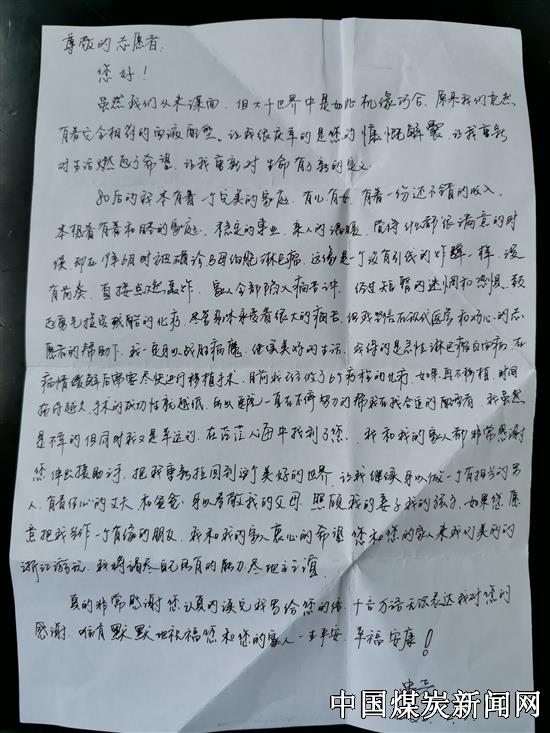 尊敬的志愿者:
您好!
虽然我们从未谋面,但大千世界中是如此机缘巧合,原来我们竟然
有着完全相同的血液配型。让我很庆幸的是您的慷慨解囊,让我重新
对生活燃起了希望,让我重新对生命有了新的定义。
80后的我本有着一个完美的家庭,有儿有女,有着一份还不错的收入,
本想着有着和睦的家庭,稳定的事业,亲人的温暖,觉得什么都很满意的时
候,却在19年6月时被确诊B母细胞淋巴瘤,这像是一个没有引线的炸弹一样,没
有前奏,直接点燃轰炸,家人全部陷入痛苦之中,经过短暂的迷惘和恐惧,鼓
起勇气接受残酷的化疗,尽管身体承受着很大的痛苦,但我坚信在现代医学和好心的志
愿者的帮助下,我一定可以战胜病魔,继续美好的生活,我得的是急性淋巴瘤白血病,在
病情缓解后需要尽快进行移植手术,目前我已经做了6疗程的化疗,如果再不移植,时间
拖得越久,手术的成功性就越低,所以医院一直在不停努力的帮我在找合适的配型者,我虽然
是不幸的但同时我又是幸运的,在茫茫人海中找到了您,我和我的家人都非常感谢
您伸出援助之手,把我重新拉回到这个美好的世界,让我继续可以做一个有担当的男
人,有责任心的丈夫和爸爸,可以孝敬我的父母,照顾我的妻子我的孩子,如果您愿
意把我当作一个有缘的朋友,我和我的家人衷心的希望您和您的家人来我们美丽的
浙江游玩,我将竭尽自己所有的能力尽地主之谊。
真的非常感谢您认真的读完我写给您的信,千言万语无法表达我对您的
感谢,唯有默默地祝福您和您的家人一生平安,幸福安康!
中国煤炭新闻网